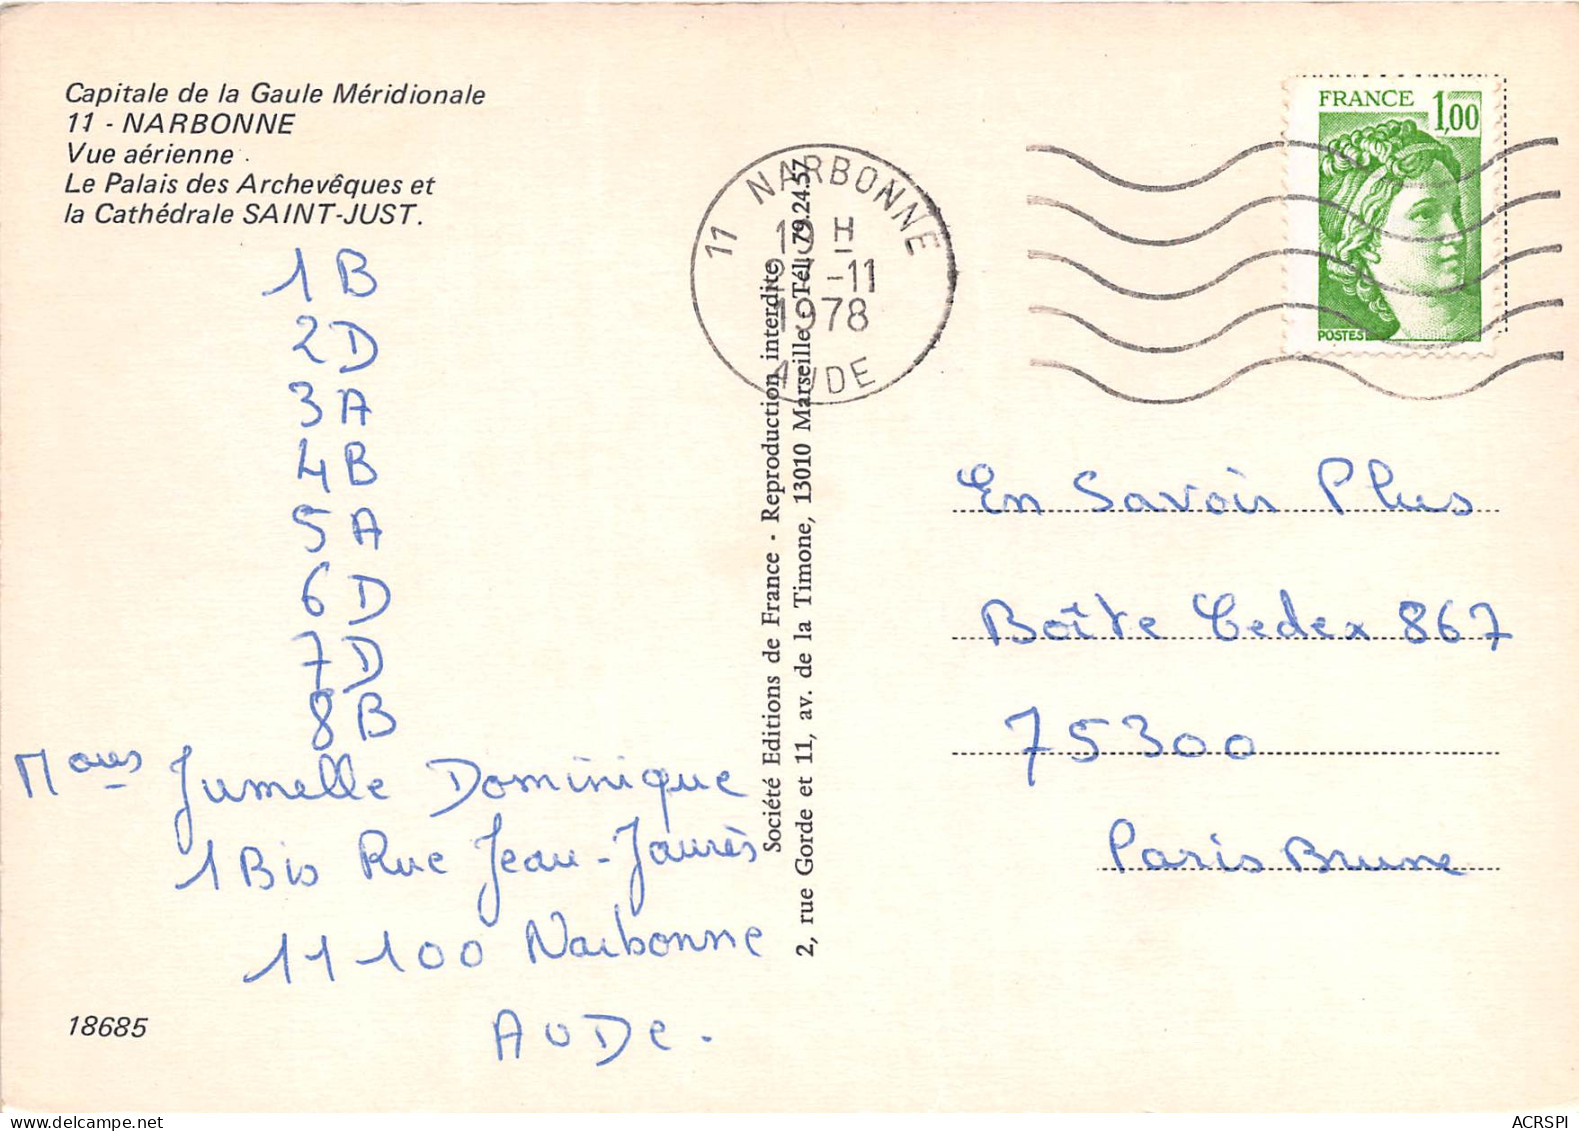 Capitale de la Gaule Méridionale
11 - NARBONNE
Vue aérienne .
Le Palais des Archevêques et
la Cathédrale SAINT-JUST.
1 B
2 D
3 A
4 B
5 A
6 D
7 D
8 B
Jumelle Dominique
1 Bis Rue Jean-Jaurès
11100 Narbonne
AUDe.
18685
Société Editions de France - Reproduction interdite
2, rue Gorde et 11, av. de la Timone, 13010 Marseille - Tél. 79.24.57
11 NARBONNE
19 H
-11
1978
AUDE
FRANCE 1,00
POSTES
En Savoir Plus
Boîte Cedex 867
75300
Paris Brune
ACRSPI